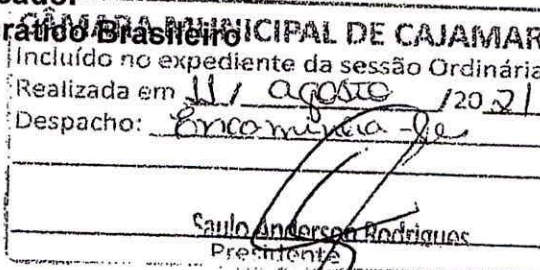 rático Brasileiro
CÂMARA MUNICIPAL DE CAJAMAR
Incluído no expediente da sessão Ordinária
Realizada em 11 / agosto /20 21
Despacho: Encaminha-se
Saulo Anderson Rodrigues
Presidente